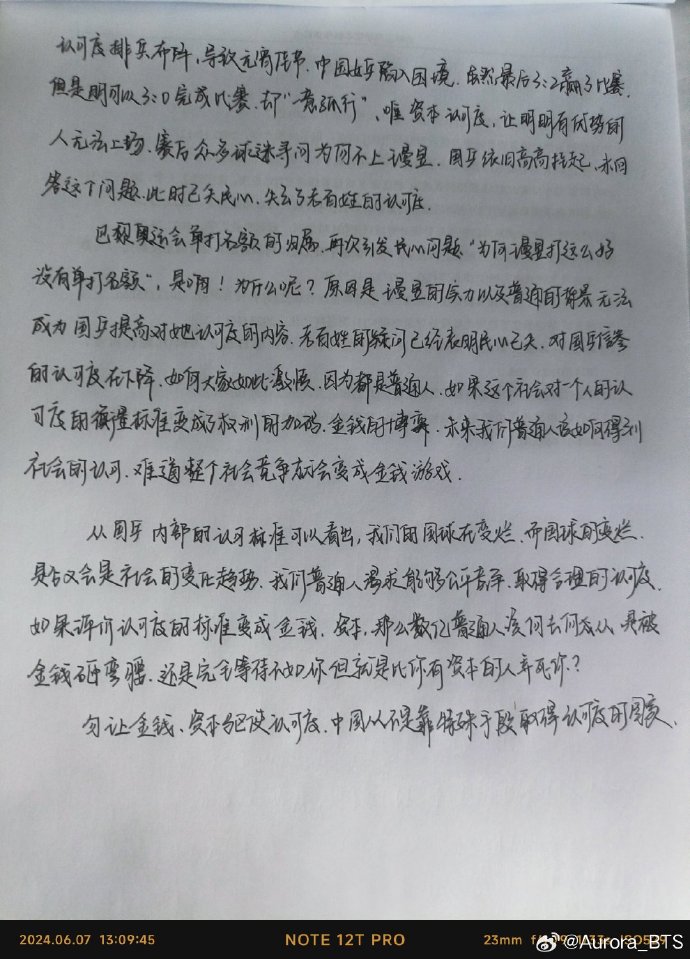 认可度排兵布阵,导致元宵佳节,中国女乒陷入困境.虽然最后3:2赢了比赛.
但是明可以3:0完成比赛.却"一意孤行",唯资本认可度,让明明有优势的
人无法上场.赛后众多球迷寻问为何不上曼昱.国乒依旧高高挂起,未回
答这个问题.此时已失民心,失去了老百姓的认可度.
巴黎奥运会单打名额的归属.再次引发民心问题"为何曼昱打这么好
没有单打名额",是啊!为什么呢?原因是曼昱的实力以及普通的背景无法
成为国乒提高对她认可度的内容.老百姓的疑问已经表明民心已失.对国乒
的认可度在下降.如何大家如此激愤.因为都是普通人.如果这个社会对一个人的认
可度的衡量标准变成了权利的加码.金钱的博弈.未来我们普通人该如何得到
社会的认可.难道整个社会竞争都会变成金钱游戏.
从国乒内部的认可标准可以看出,我们的国球在变烂.而国球的变烂.
是否又会是社会的变化趋势.我们普通人渴求能够公平竞争.取得合理的认可度.
如果评价认可度的标准变成金钱.资本.那么数亿普通人该何去何从.是被
金钱砸弯腰.还是完全等待不如你但就是比你有资本的人弄死你?
勿让金钱、资本驱使认可度.中国从不是靠特殊手段取得认可度的国家.
2024.06.07 13:09:45
NOTE 12T PRO
23mm
@Aurora_BTS